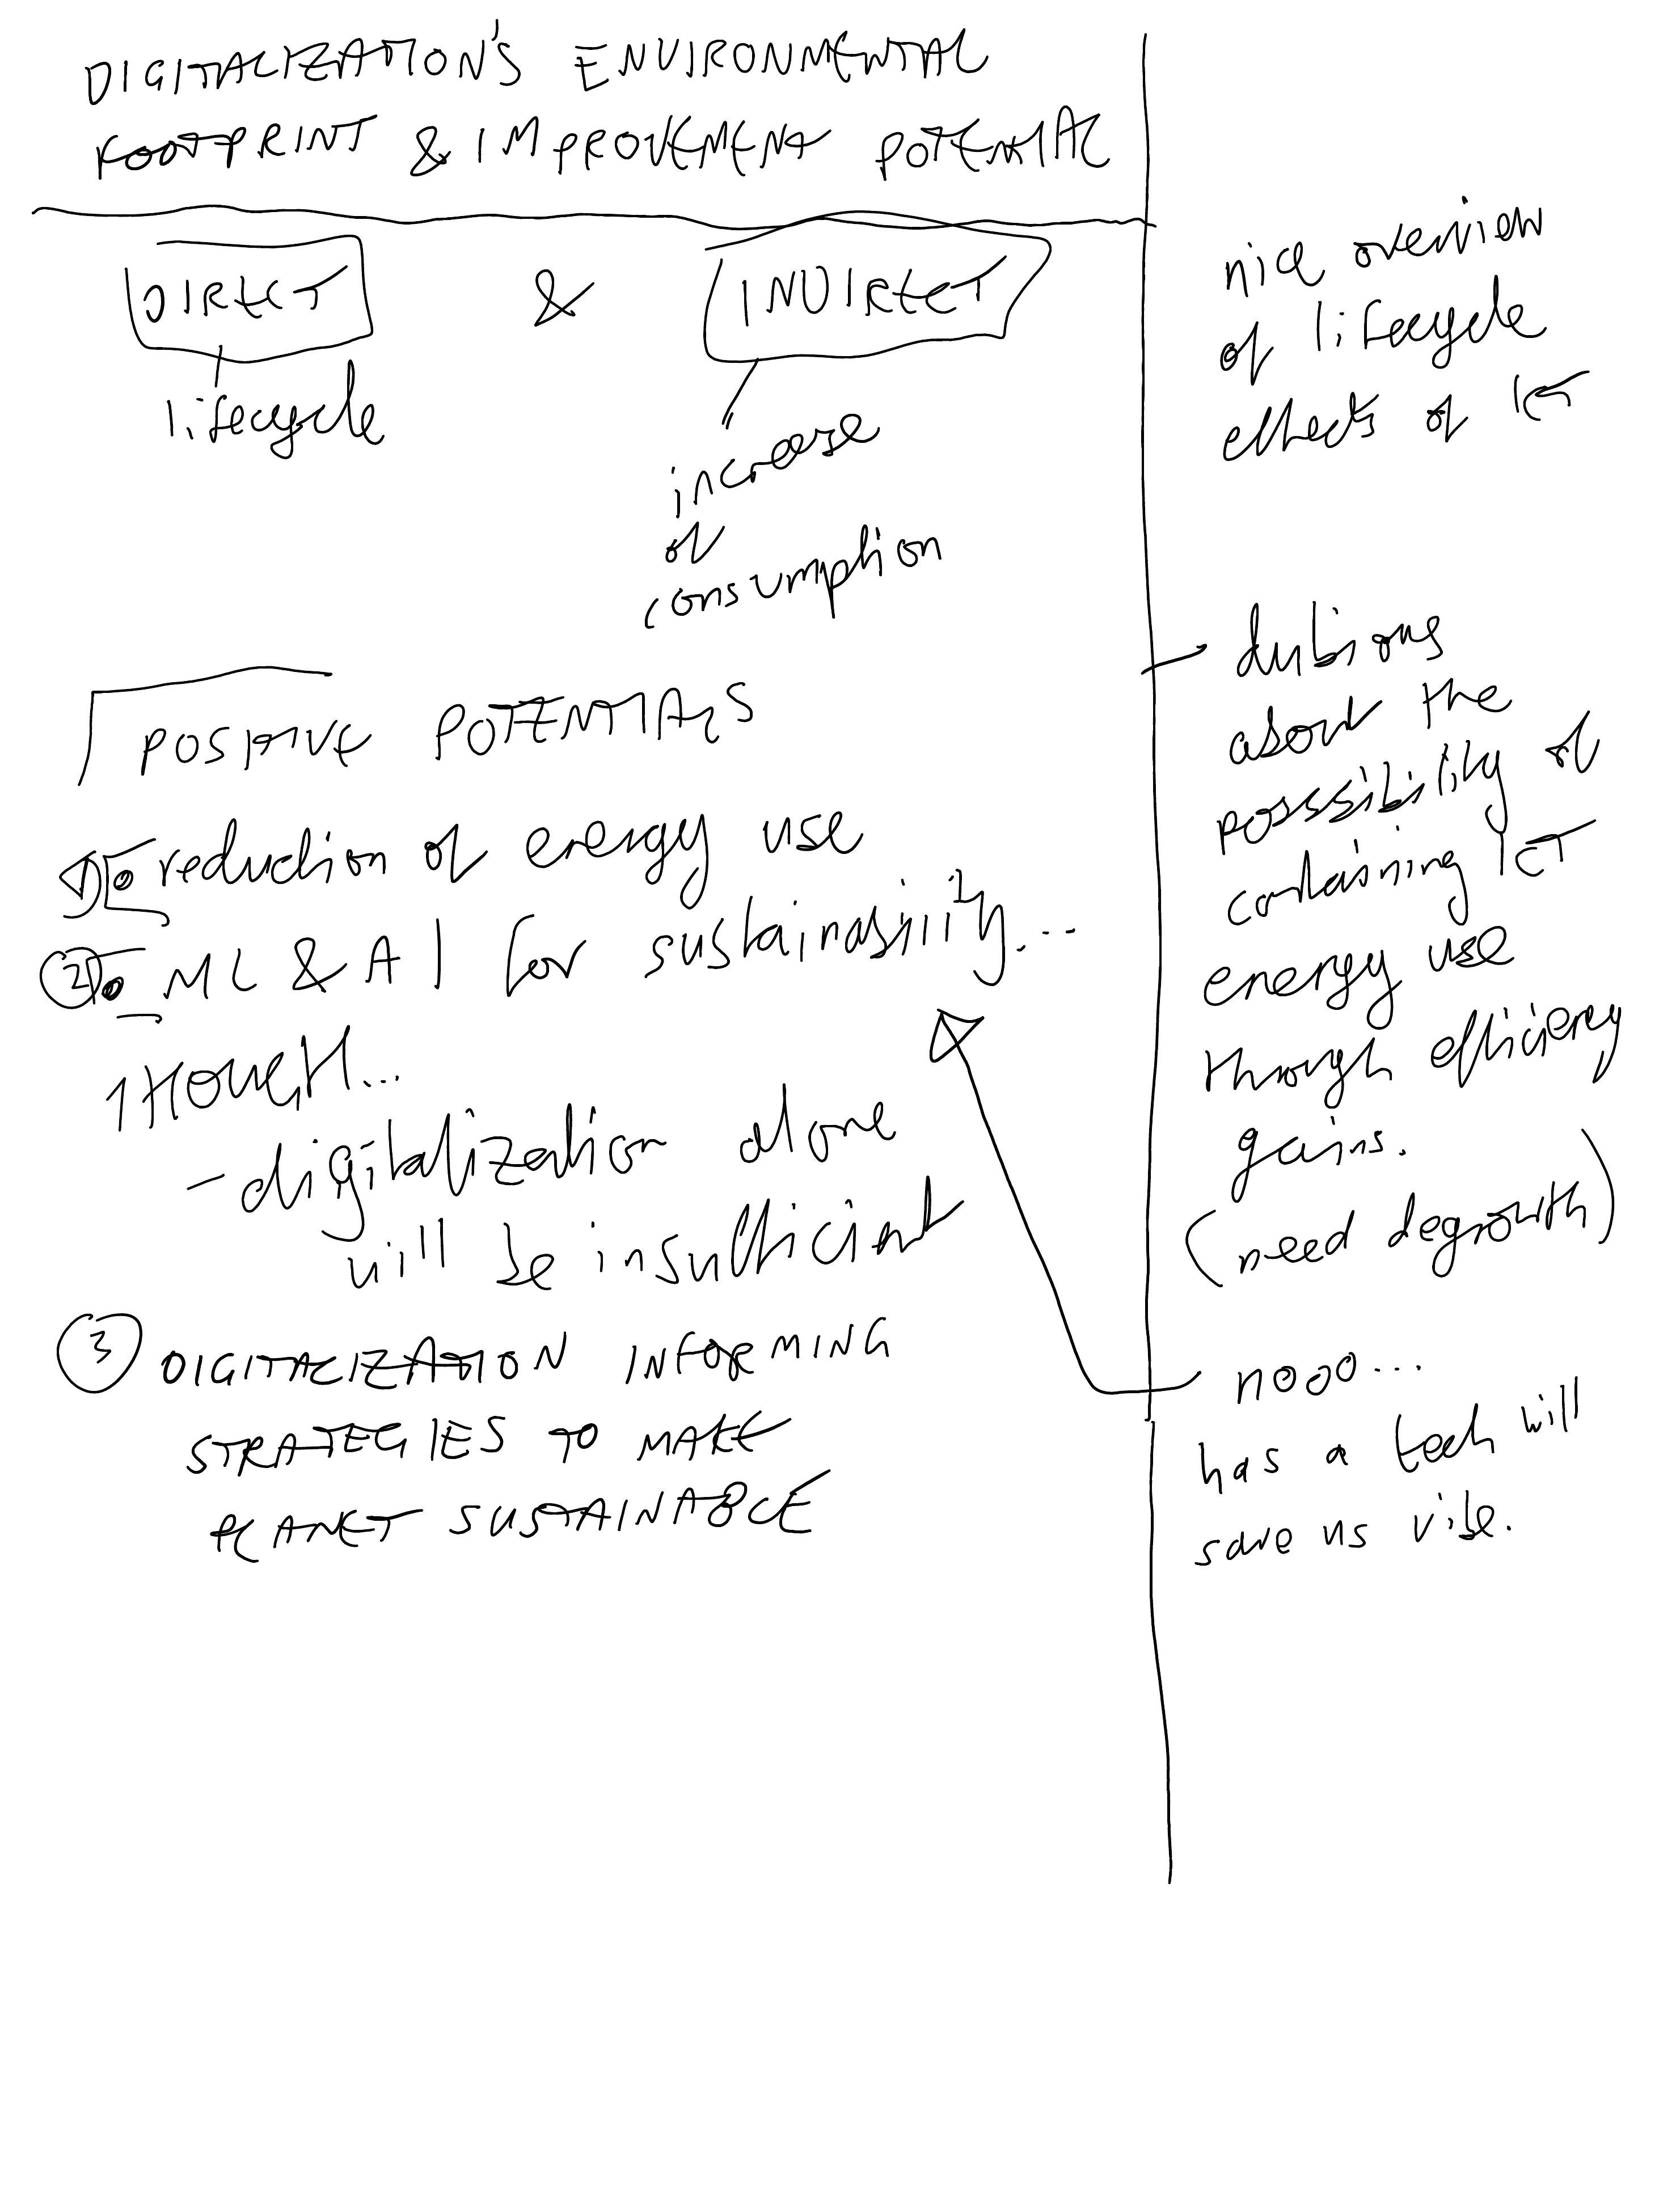 DIGITALIZATION'S ENVIRONMENTAL
FOOTPRINT & IMPROVEMENT POTENTIAL
DIRECT & INDIRECT
lifecycle
increase
of
consumption
POSITIVE POTENTIALS
1) reduction of energy use
2) ML & AI for sustainability...
THOUGH...
- digitalization alone
will be insufficient
3 DIGITALIZATION INFORMING
STRATEGIES TO MAKE
PLANET SUSTAINABLE
nice overview
of lifecycle
effects of ICT
dubious
about the
posssibility of
containing ICT
energy use
through efficiency
gains.
(need degrowth)
nooo...
has a tech will
save us vibe.